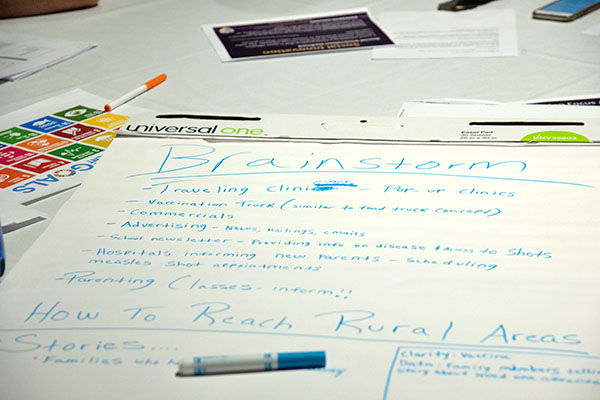 Social Innovation
universal one
Easel Pad
UNV35603
GOALS
Brainstorm
- Traveling clinic - Pop-up clinics
- Vaccination Truck (similar to food truck concept)
- Commercials
- Advertising - News, Mailings, emails
- School newsletter - Providing info on disease & Access to Shots
- Hospitals informing new parents - Scheduling
measles shot appointments
- Parenting Classes - inform!!
How To Reach Rural Areas
Stories....
Families who
Clarity: Vaccine
Data: Family members
story about loved one